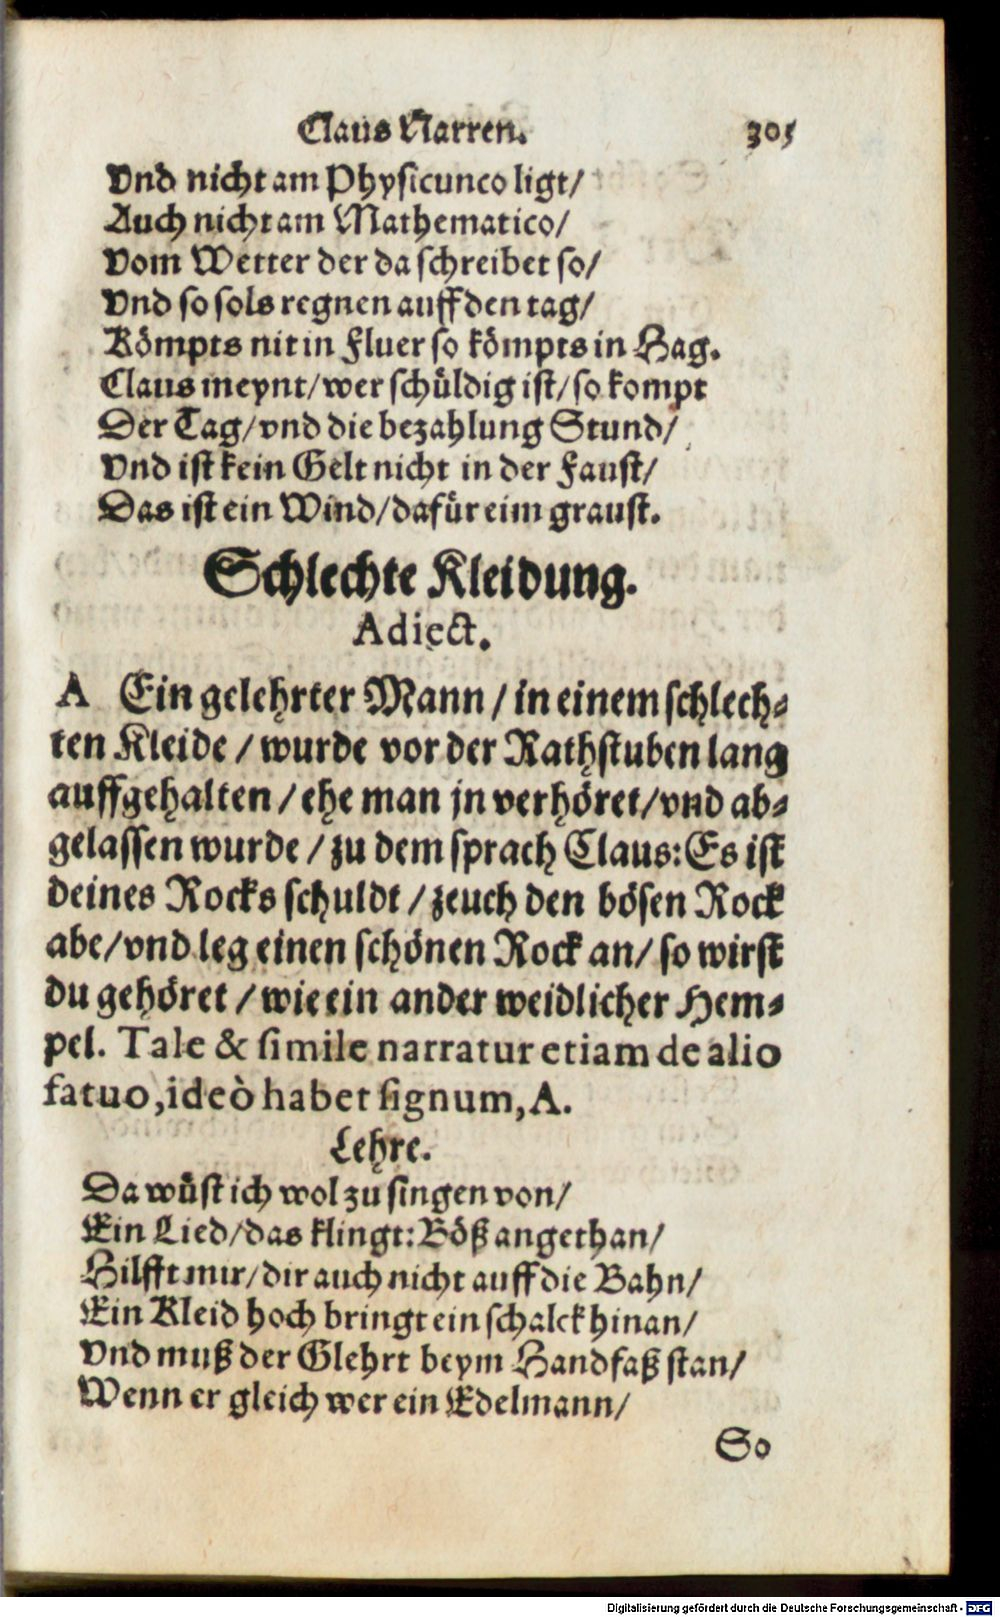 Claus Narren. 305
Vnd nicht am Physicunco ligt/
Auch nicht am Mathematico/
Vom Wetter der da schreibet so/
Vnd so sols regnen auff den tag/
Kömpts nit in Fluer so kömpts in Hag.
Claus meynt/wer schüldig ist/so kompt
Der Tag/vnd die bezahlung Stund/
Vnd ist kein Gelt nicht in der Faust/
Das ist ein Wind/dafür eim graust.
Schlechte Kleidung.
Adiect.
A Ein gelehrter Mann / in einem schlech-
ten Kleide / wurde vor der Rathstuben lang
auffgehalten / ehe man jn verhöret/vnd ab-
gelassen wurde / zu dem sprach Claus: Es ist
deines Rocks schuldt / zeuch den bösen Rock
abe/vnd leg einen schönen Rock an/ so wirst
du gehöret / wie ein ander weidlicher Hem-
pel. Tale & simile narratur etiam de alio
fatuo, ideò habet signum, A.
Lehre.
Da wüst ich wol zu singen von/
Ein Lied/das klingt: Böß angethan/
Hilfft mir/dir auch nicht auff die Bahn/
Ein Kleid hoch bringt ein schalck hinan/
Vnd muß der Glehrt beym Handfaß stan/
Wenn er gleich wer ein Edelmann/
So
Digitalisierung gefördert durch die Deutsche Forschungsgemeinschaft - DFG